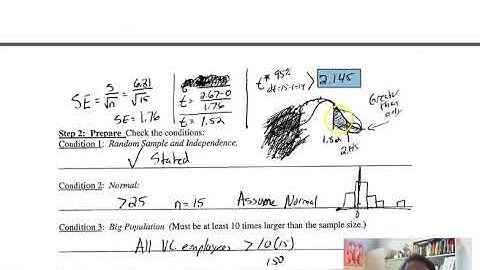 SE = s/√n = 6.81/√15
SE = 1.76
t = 2.67-0/1.76
t = 1.52
t* 95% df=15-1=14 > 2.145
Greater than only
1.52
2.145
Step 2: Prepare Check the conditions:
Condition 1: Random Sample and Independence.
✓ Stated
Condition 2: Normal:
>25 n=15 Assume Normal
0
Condition 3: Big Population (Must be at least 10 times larger than the sample size.)
All VC employees > 10(15)
150